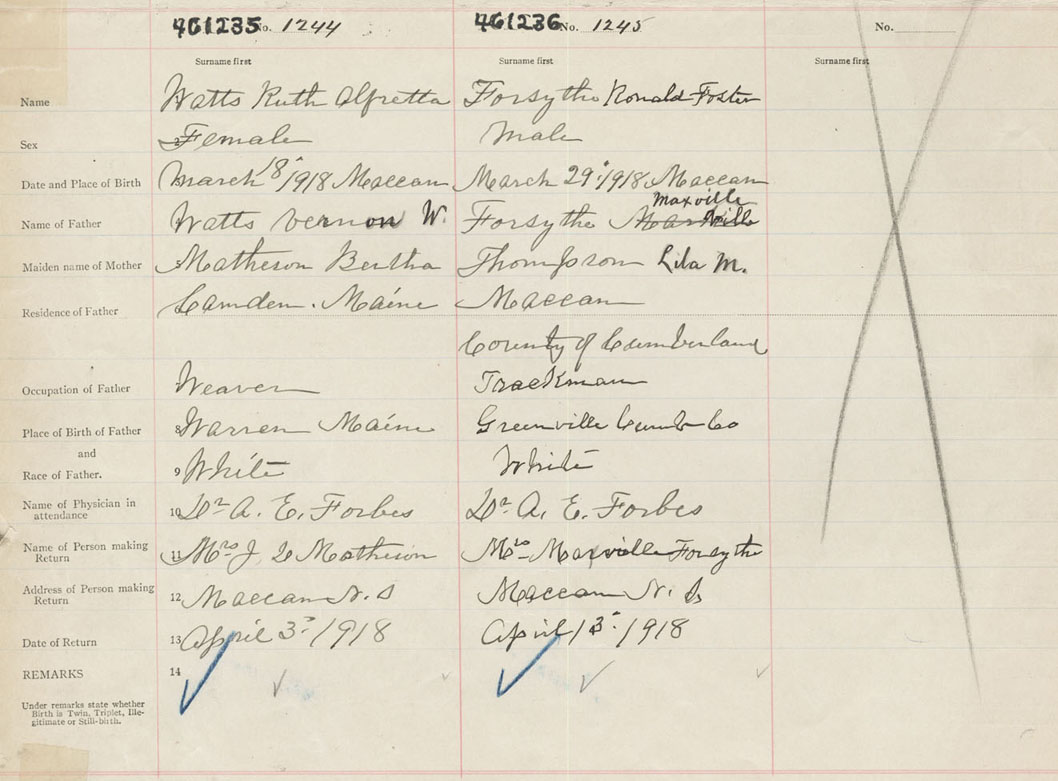 461235 No. 1244 461236 No. 1245 No.
Surname first Surname first Surname first
Name Watts Ruth Alfretta Forsythe Ronald Foster
Sex 2 Female Male
Date and Place of Birth March 18th/1918 Maccan March 29th/1918 Maccan
Maxville
Name of Father Watts Vernon W. Forsythe
Maiden name of Mother Matheson Bertha Thompson Lila M.
Residence of Father Camden. Maine Maccan
County of Cumberland
Occupation of Father Weaver Trackman
Place of Birth of Father 8 Warren Maine Greenville Cumb Co
and
Race of Father. 9 White White
Name of Physician in
attendance 10 Dr A. E. Forbes Dr. A. E. Forbes
Name of Person making
Return 11 Mrs J Matheson Mrs Maxville Forsythe
Address of Person making
Return 12 Maccan N. S Maccan N. S
Date of Return 13 April 3rd/1918 April 13th/1918
REMARKS 14
Under remarks state whether
Birth is Twin, Triplet, Ille-
gitimate or Still-birth.